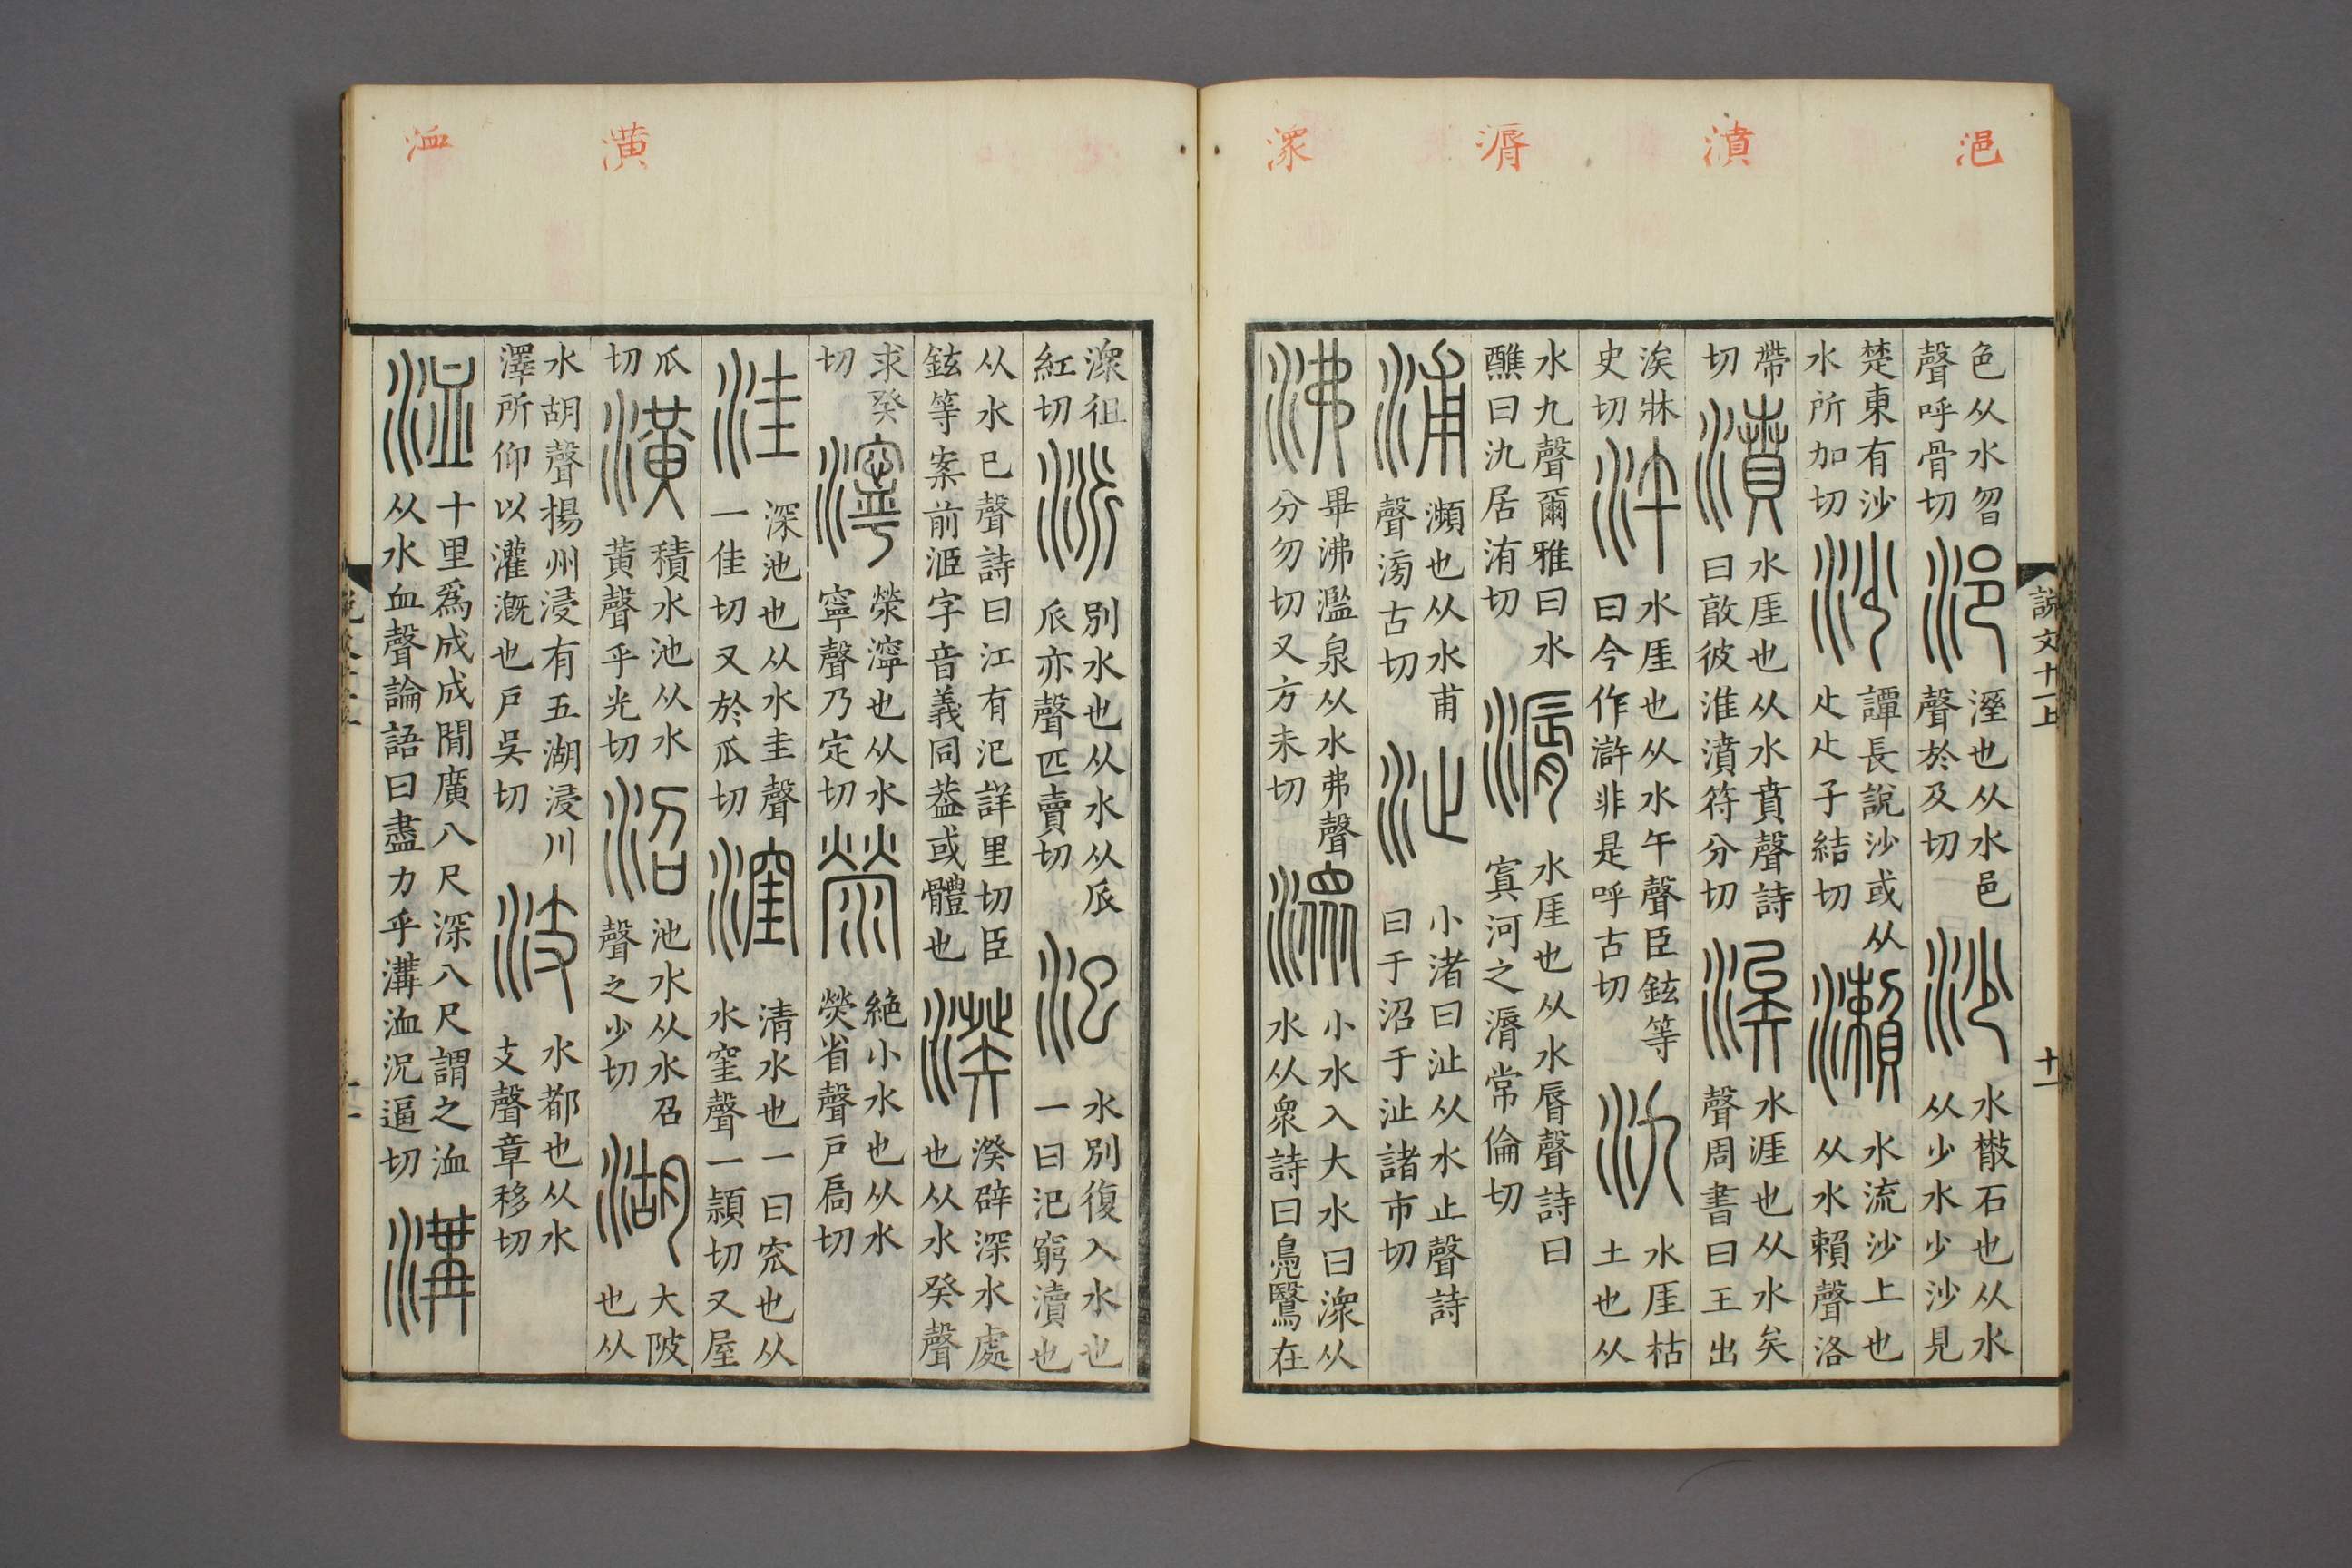 浥
濆
漘
潀
説文十一上
十一
色从水曶
聲呼骨切
浥
溼也从水邑
聲於及切
沙
水㪔石也从水
从少水少沙見
楚東有沙
水所加切
譚長說沙或从
尐尐子結切
瀨
水流沙上也
从水賴聲洛
帶
切
濆
水厓也从水賁聲詩
曰敦彼淮濆符分切
涘
水涯也从水矣
聲周書曰王出
涘牀
史切
汻
水厓也从水午聲臣鉉等
曰今作滸非是呼古切
氿
水厓枯
土也从
水九聲爾雅曰水
醮曰氿居洧切
漘
水厓也从水脣聲詩曰
寘河之漘常倫切
浦
瀕也从水甫
聲滂古切
沚
小渚曰沚从水止聲詩
曰于沼于沚諸市切
沸
畢沸濫泉从水弗聲
分勿切又方未切
潀
小水入大水曰潀从
水从眾詩曰鳧鷖在
潢
洫
潀徂
紅切
派
別水也从水从𠂢
𠂢亦聲匹賣切
汜
水別復入水也
一曰汜窮瀆也
从水巳聲詩曰江有汜詳里切臣
鉉等案前洍字音義同葢或體也
湀
湀辟深水處
也从水癸聲
求癸
切
濘
滎濘也从水
寧聲乃定切
滎
絕小水也从水
熒省聲戶扃切
洼
深池也从水圭聲
一佳切又於瓜切
窪
清水也一曰窊也从
水窐聲一潁切又屋
瓜
切
潢
積水池从水
黃聲乎光切
沼
池水从水召
聲之少切
湖
大陂
也从
水胡聲揚州浸有五湖浸川
澤所仰以灌溉也戶吳切
汥
水都也从水
支聲章移切
洫
十里爲成成閒廣八尺深八尺謂之洫
从水血聲論語曰盡力乎溝洫況逼切
溝